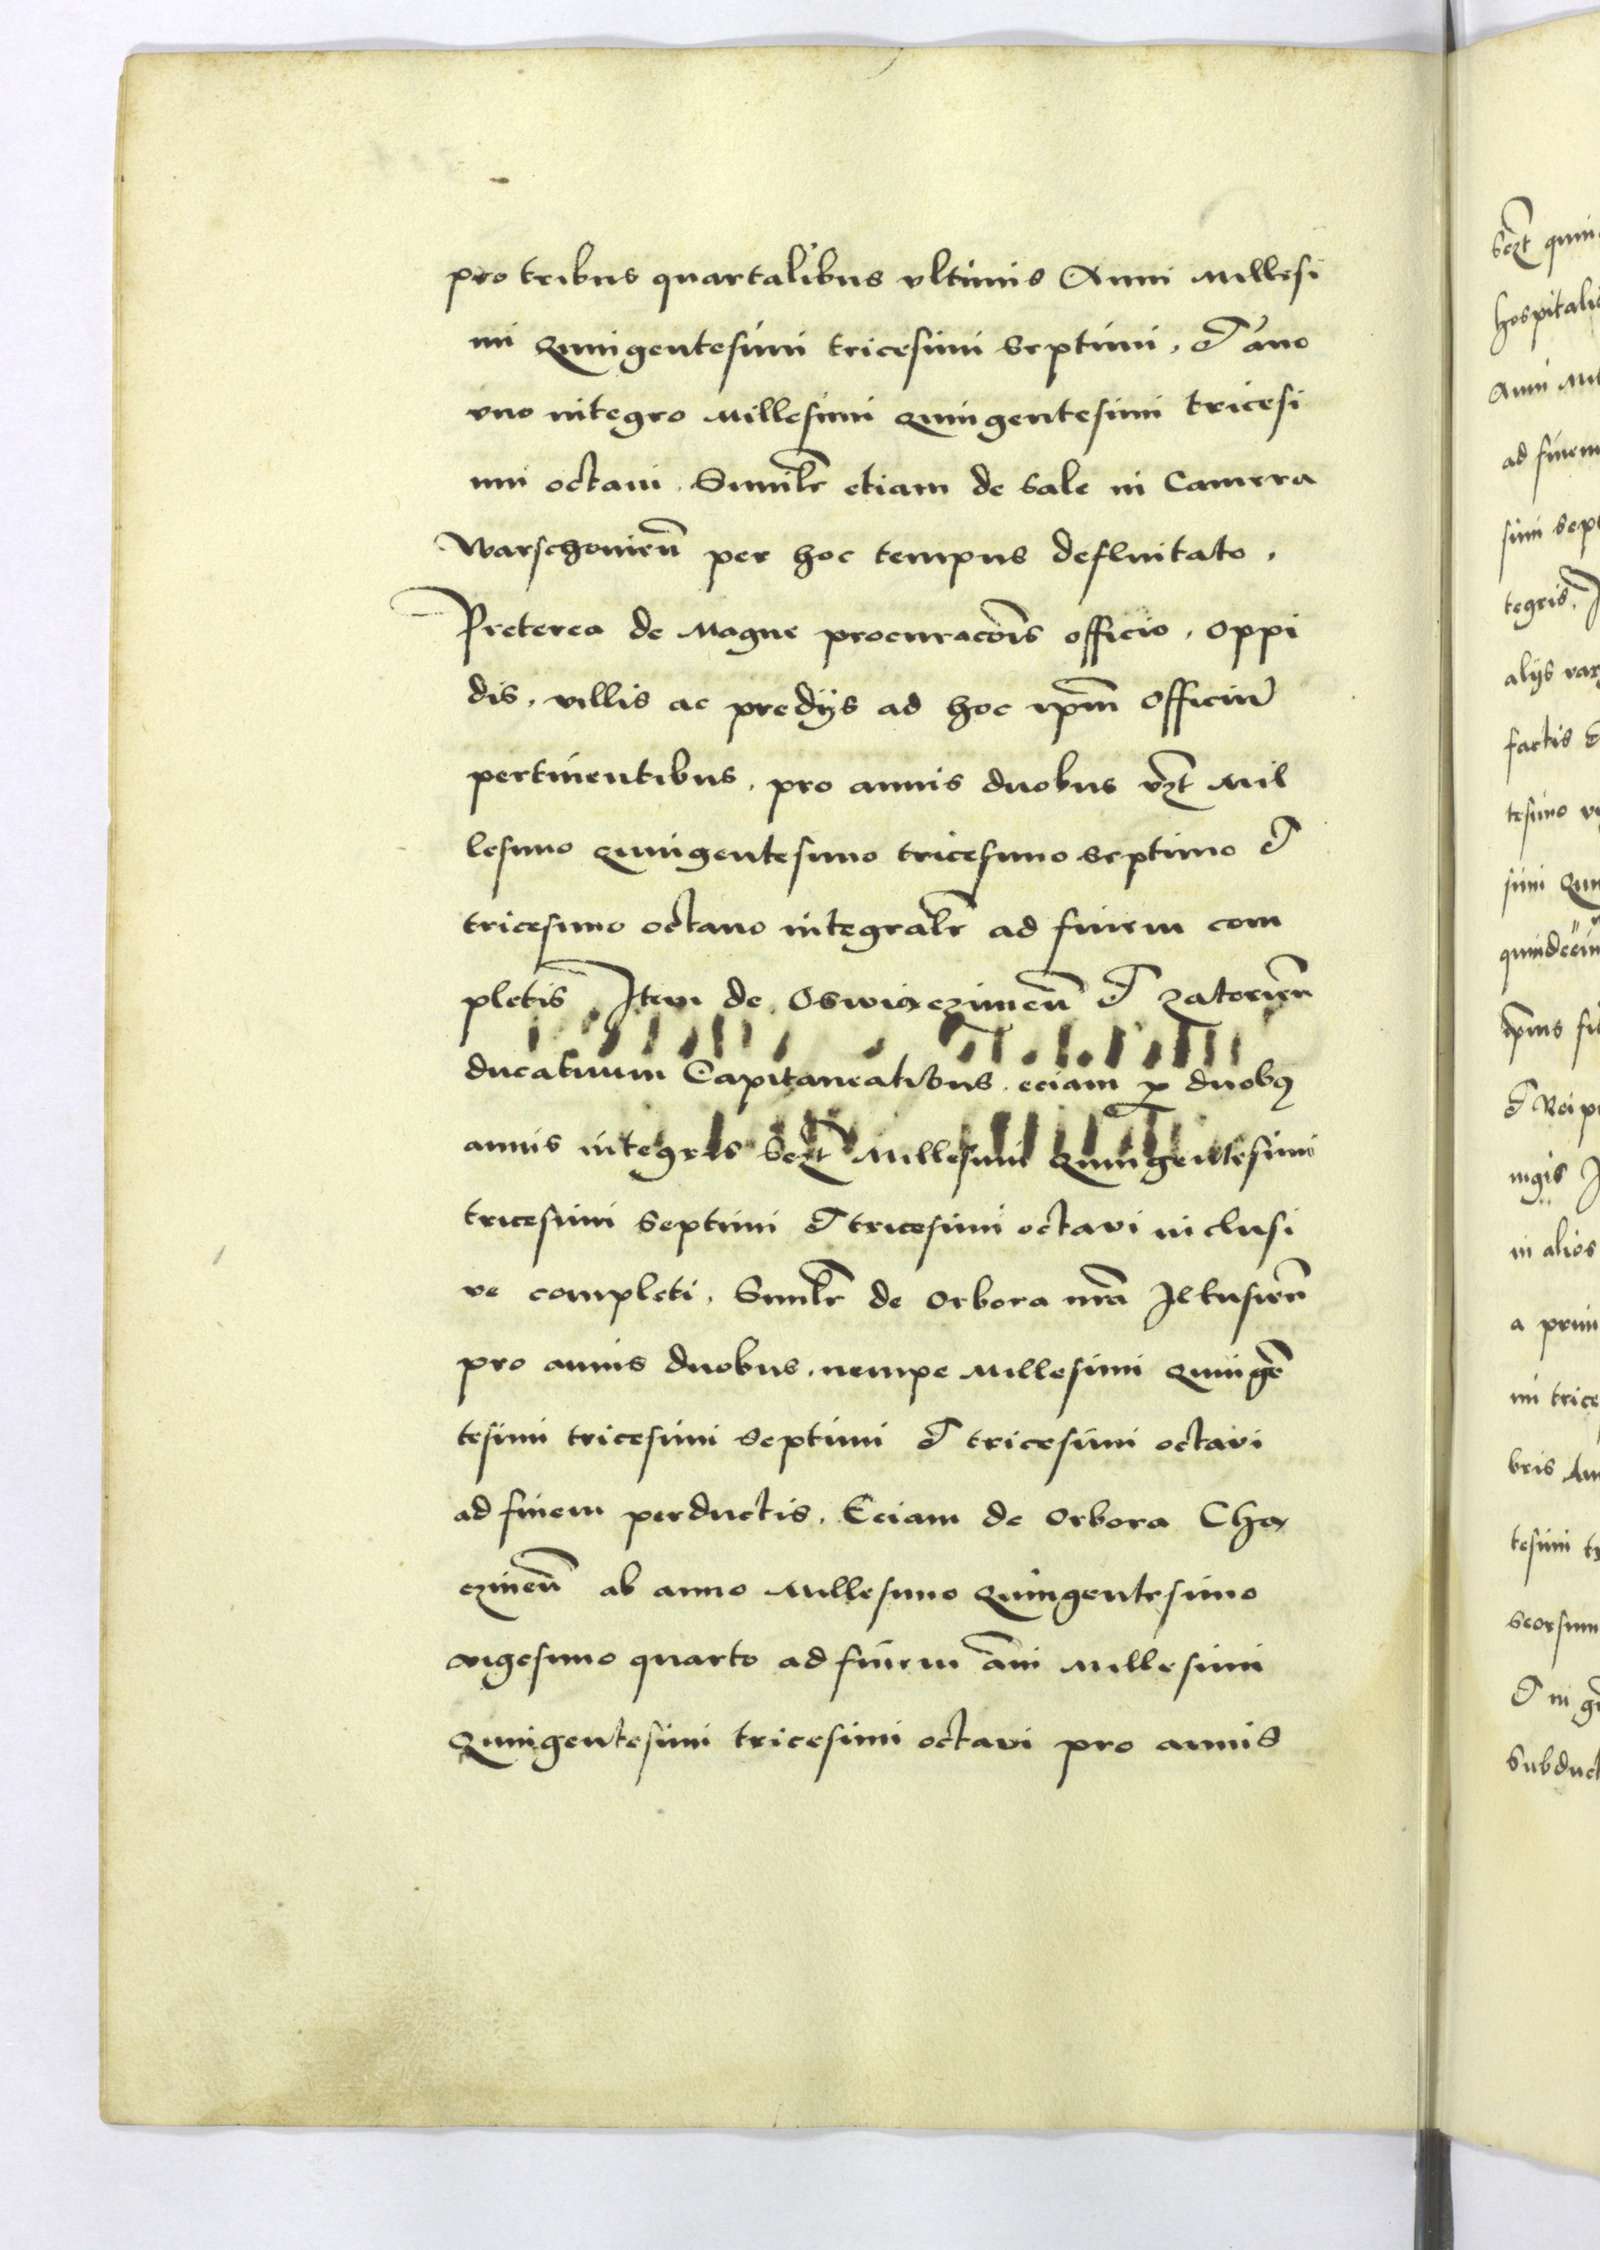 pro tribus quartalibus vltimis Anni Millesi
mi Quingentesimi tricesimi septimi, et año
vno integro Millesimi Quingentesimi tricesi
mi octaui. Similr̃ etiam de sale in Camera
Warschouien̄ per hoc tempus defluitato.
Preterea de Magne procuracōis officio, oppi
dis, villis ac predijs ad hoc ipm̄ officiū
pertinentibus, pro annis duobus vꝫt Mil
lesimo Quingentesimo tricesimo septimo et
tricesimo octauo integralr̃ ad finem com
pletis, Item de Oswiaczimen̄ et Zatorien̄
ducatuum Capitaneatibus, eciam ꝓ duobꝯ
annis integris scꝫt Millesimi Quingentesimi
tricesimi septimi et tricesimi octavi inclusi
ve completi. Similr̃ de Orbora nr̄a Ilkusien̄
pro annis duobus, nempe Millesimi Quingē
tesimi tricesimi septimi et tricesimi octavi
ad finem perductis. Eciam de Orbora Cha
czinen̄ ab anno Millesimo Quingentesimo
vigesimo quarto ad finem āni Millesimi
Quingentesimi tricesimi octavi pro annis
hospitali
ad finem
tegris.
factis et
in alios
a prim
mi trice
bris An
seorsum
subduct